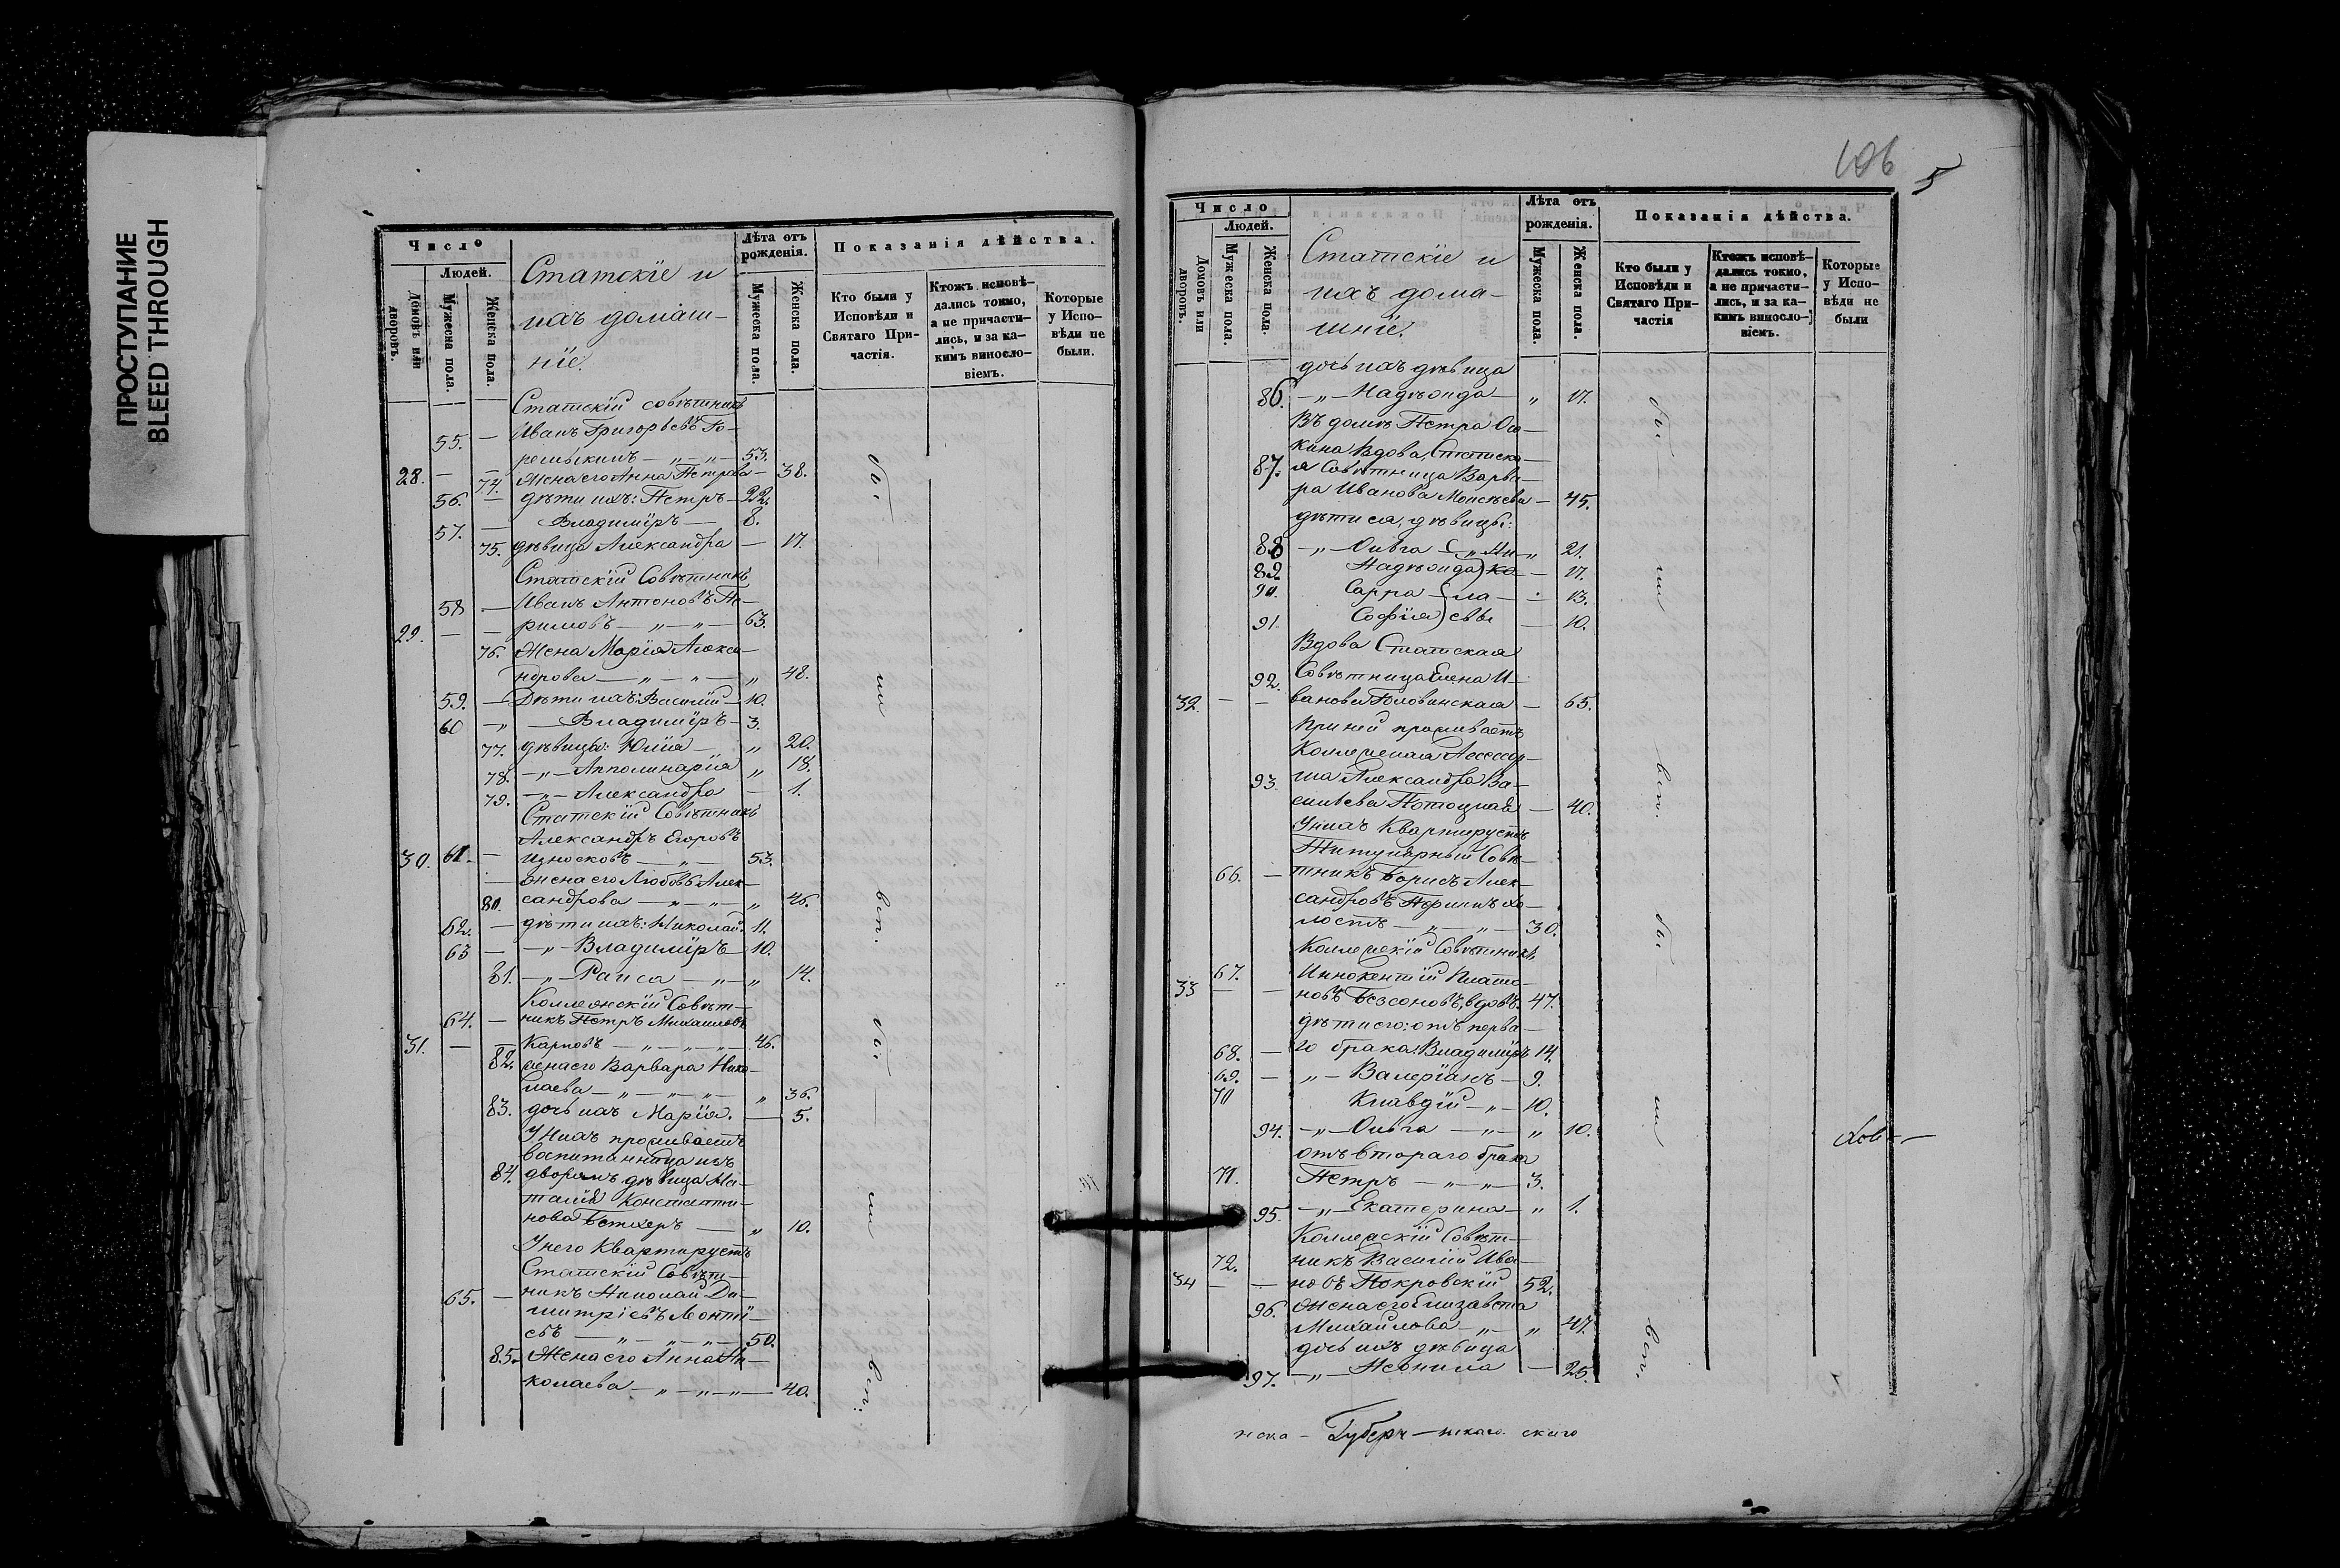 ПРОСТУПАНИЕ
BLEED THROUGH
Число
Людей.
Домовъ или дворовъ.
Мужеска пола.
Женска пола.
Статскіе и
ихъ домаш-
ніе.
Лѣта отъ рожденія.
Мужеска пола.
Женска пола.
Показанія дѣйства.
Кто были у Исповѣди и Святаго Причастія.
Ктожъ исповѣ-
дались токмо,
а не причасти-
лись, и за ка-
кимъ виносло-
віемъ.
Которые
у Испо-
вѣди не
были.
Статскій совѣтникъ
55. — Иванъ Григорьевъ Го-
ремыкинъ — „ — „ — 53.
28. — — 74. Жена его Анна Петрова — 38.
56. — дѣти ихъ: Петръ — 22.
57. — Владиміръ — 8.
75. дѣвица Александра — 17.
Статскій Совѣтникъ
58 — Иванъ Антоновъ
29. — — „ — „ — 63.
76. Жена Марія Алекса-
ндрова — „ — „ — „ 48.
59. — Дѣти ихъ: Василій — 10.
60 — „ — Владиміръ — 3.
77. дѣвицы: Юлія — „ 20.
78. — „ — Апполинарія „ 18.
79. — „ — Александра — 1.
Статскій Совѣтникъ
Александръ Егоровъ
30. 61. — Износковъ — „ — 53.
— жена его Любовь Алек-
80. сандрова — „ — „ — „ 46.
62. — дѣти ихъ: Николай. 11.
63 — — „ — Владиміръ — 10.
81. — „ — Раиса — „ — „ 14.
Коллежскій Совѣт-
64. — никъ Петръ Михаиловъ
31. — — Карповъ — „ — „ — „ — 46.
82. жена его Варвара Нико-
лаева — „ — „ — „ — „ 36.
83. дочь ихъ Марія. — 5.
У нихъ проживаетъ
воспитанница изъ
84. дворянъ дѣвица На-
талія Константи-
нова — „ 10.
У него Квартируетъ
Статскій Совѣт-
65. — никъ Николай Ди-
митріевъ Леонтї-
евъ — „ — „ — „ — 50.
85. Жена его Анна Ни-
колаева — „ — „ — „ — 40.
бы — ли
исп.
бы — ли
исп.
106
5
Число
Людей.
Домовъ или дворовъ.
Мужеска пола.
Женска пола.
Статскіе и
ихъ дома-
шніе.
Лѣта отъ рожденія.
Мужеска пола.
Женска пола.
Показанія дѣйства.
Кто были у
Исповѣди и
Святаго При-
частія
Ктожъ исповѣ-
дались токмо,
а не причасти-
лись, и за ка-
кимъ винослo-
віемъ.
Которые
у Испо-
вѣди не
были
дочь ихъ дѣвица
86. — „ — Надѣжда — „ 17.
Въ домѣ Петра Ос-
кина Вдова, Статска-
87. я Совѣтница Варва-
ра Иванова Моисѣева — 45.
дѣти ея, дѣвицы:
88 — „ — Ольга — „ Ни- „ 21.
89. Надѣжда) ко — 17.
90. Сарра — ла — 13.
91 Софія) евы — 10.
Вдова Статская
92. Совѣтница Елена И-
32. — — ванова Головинская — 65.
При ней проживаетъ
Коллежская Ассесор-
93. ша Александра Ва-
сильева Потоцкая — 40.
У нихъ Квартируетъ
Титулярный Совѣ-
66. — тникъ Борисъ Алек-
сандровъ хо-
лостъ — „ — „ — 30.
Коллежскій Совѣтникъ
67. Иннокентій Плато-
33 — — новъ Безсоновъ, вдовъ. 47.
дѣти его: отъ перва-
68. — го брака: Владиміръ 14.
69. — „ — Валеріанъ — 9.
70 Клавдій — „ — 10.
94. — „ — Ольга — „ — „ 10.
отъ втораго брака
71. Петръ — „ — „ — 3.
95. — „ — Екатерина — „ 1.
Коллежскій Совѣт-
72. никъ Василій Ива-
34 — — новъ Покровскій 52.
96. Жена его Елизавета
Михайлова — „ — „ 47.
дочь ихъ дѣвица
97. — „ — Неонила — 25.
бы — ли
исп.
бы — ли
исп.
Губерн — скаго